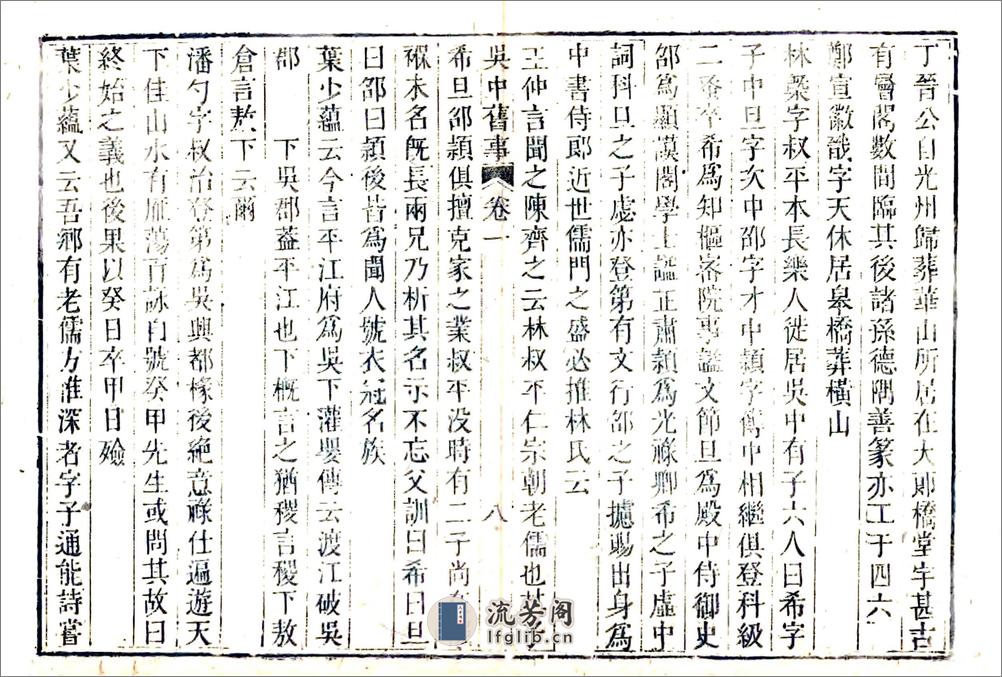 丁晉公自光州歸葬華山所居在大郎橋堂宇甚古
有層閣數間臨其後諸孫德隅善篆亦工于四六
鄭宣徽戩字天休居皋橋葬橫山
林槩字叔平本長樂人徙居吳中有子六人曰希字
子中旦字次中邵字才中顏字傳中相繼俱登科級
二登卒希為知樞密院事諡文節旦為殿中侍御史
邵為顯謨閣學士諡正肅顏為光祿卿希之子虛中
詞科旦之子虙亦登第有文行邵之子攄賜出身為
中書侍郎近世儒門之盛必推林氏云
王仲言聞之陳齊之云林叔平仁宗朝老儒也
吳中舊事 卷一 八
希旦邵顏俱擅克家之業叔平没時有二子尚在
褓未名旣長兩兄乃析其名示不忘父訓曰希曰旦
曰邵曰顏後皆為聞人號衣冠名族
葉少蘊云今言平江府為吳下灌嬰傳云渡江破吳
郡 下吳郡葢平江也下概言之猶稷言稷下敖
倉言敖下云爾
潘勺字叔治登第為吳興都椽後絶意祿仕遍遊天
下佳山水有雁蕩百詠自號癸甲先生或問其故曰
終始之義也後果以癸日卒甲日殮
葉少蘊又云吾鄉有老儒方惟深者字子通能詩嘗
流芳阁
lfglib.cn